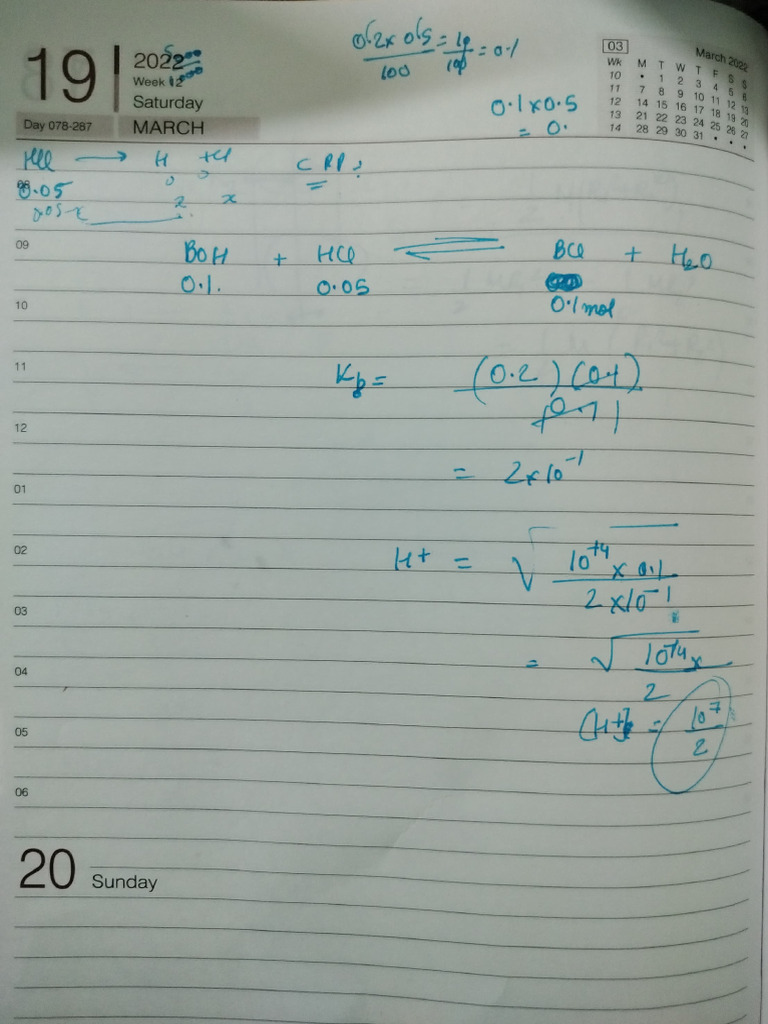 19
2022
Week 12
Saturday
Day 078-287 MARCH
0.2 x 0.5 / 100 = 10 / 100 = 0.1
0.1 x 0.5
= 0.
03 March 2022
Wk M T W T F S S
10 • 1 2 3 4 5 6
11 7 8 9 10 11 12 13
12 14 15 16 17 18 19 20
13 21 22 23 24 25 26 27
14 28 29 30 31 • • •
HCl → H +Cl
0 0
08 0.05
0.05-x x x
09 BOH + HCl ⇌ BCl + H2O
0.1. 0.05
10 0.1 mol
11 Kb = (0.2) (0.1)
12 0.1
= 2x10^-1
01
02 H+ = √ 10^-14 x 0.1
2 x 10^-1
03
= √ 10^-14 x
04 2
05 [H+] = 10^7 / 2
06
20 Sunday